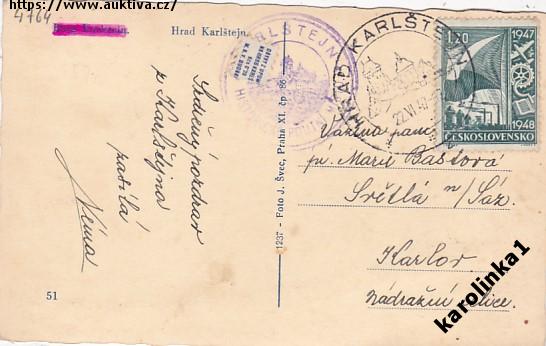 https://www.auktiva.cz/
4764
Hrad Karlštejn.
Srdečný pozdrav
z Karlštejna
zasílá
51
1237 - Foto J. Švec, Praha XI. čp. 86
KARLŠTEJN
HRAD KARLŠTEJN
22.VI.
1·20
1947
1948
ČESKOSLOVENSKO
Vážená paní
pí. Marii Baštová
Světlá n/Sáz.
Karlov
Nádražní ulice.
karolinka1